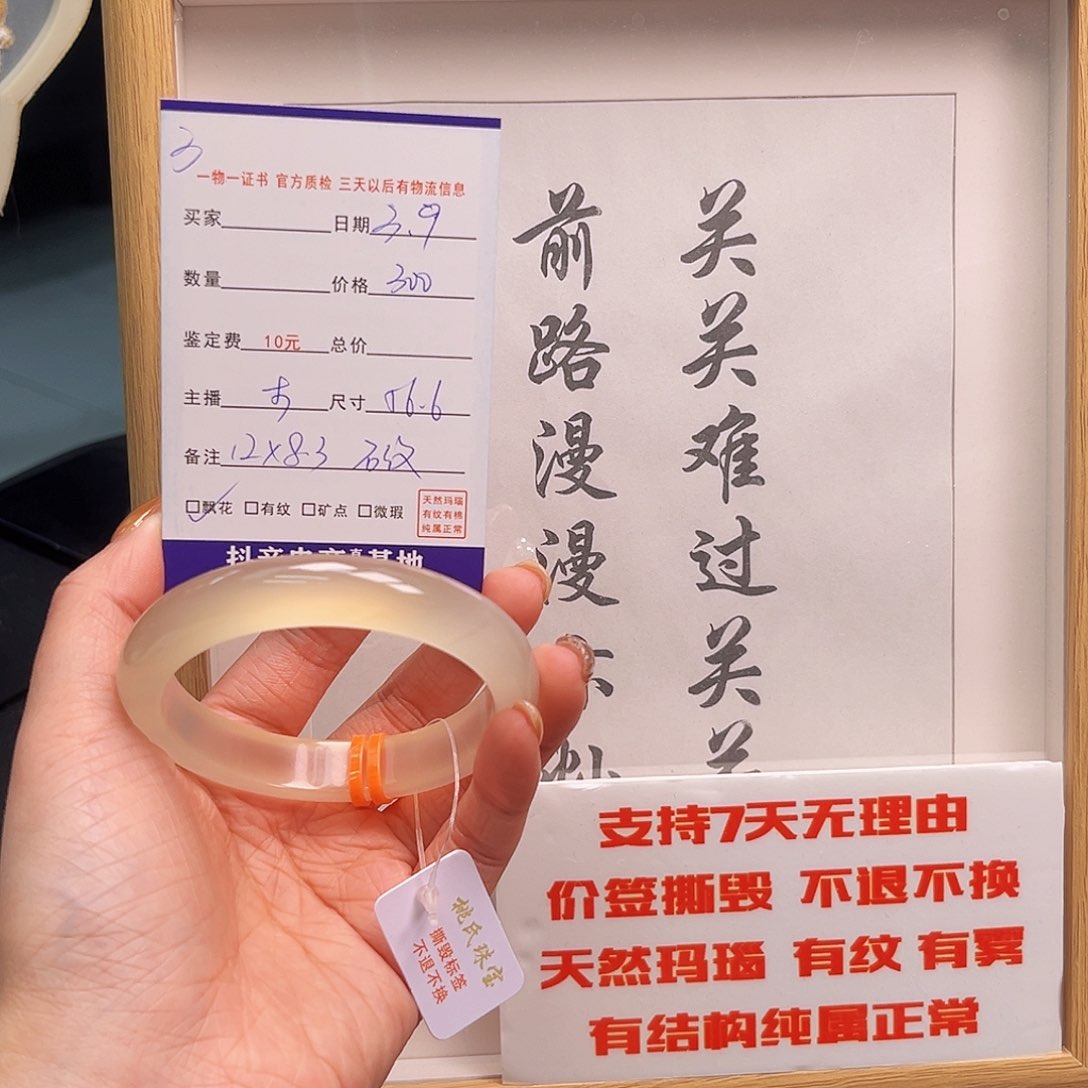 一物一证书 官方质检 三天以后有物流信息
买家 日期 3.9
数量 价格 300
鉴定费 10元 总价
主播 尺寸 56.6
备注 12×8.3 石纹
☐飘花 ☐有纹 ☐矿点 ☐微瑕
天然玛瑙
有纹有棉
纯属正常
关关难过关
前路漫漫
姚氏珠宝
撕毁标签
不退不换
支持7天无理由
价签撕毁 不退不换
天然玛瑙 有纹 有雾
有结构纯属正常